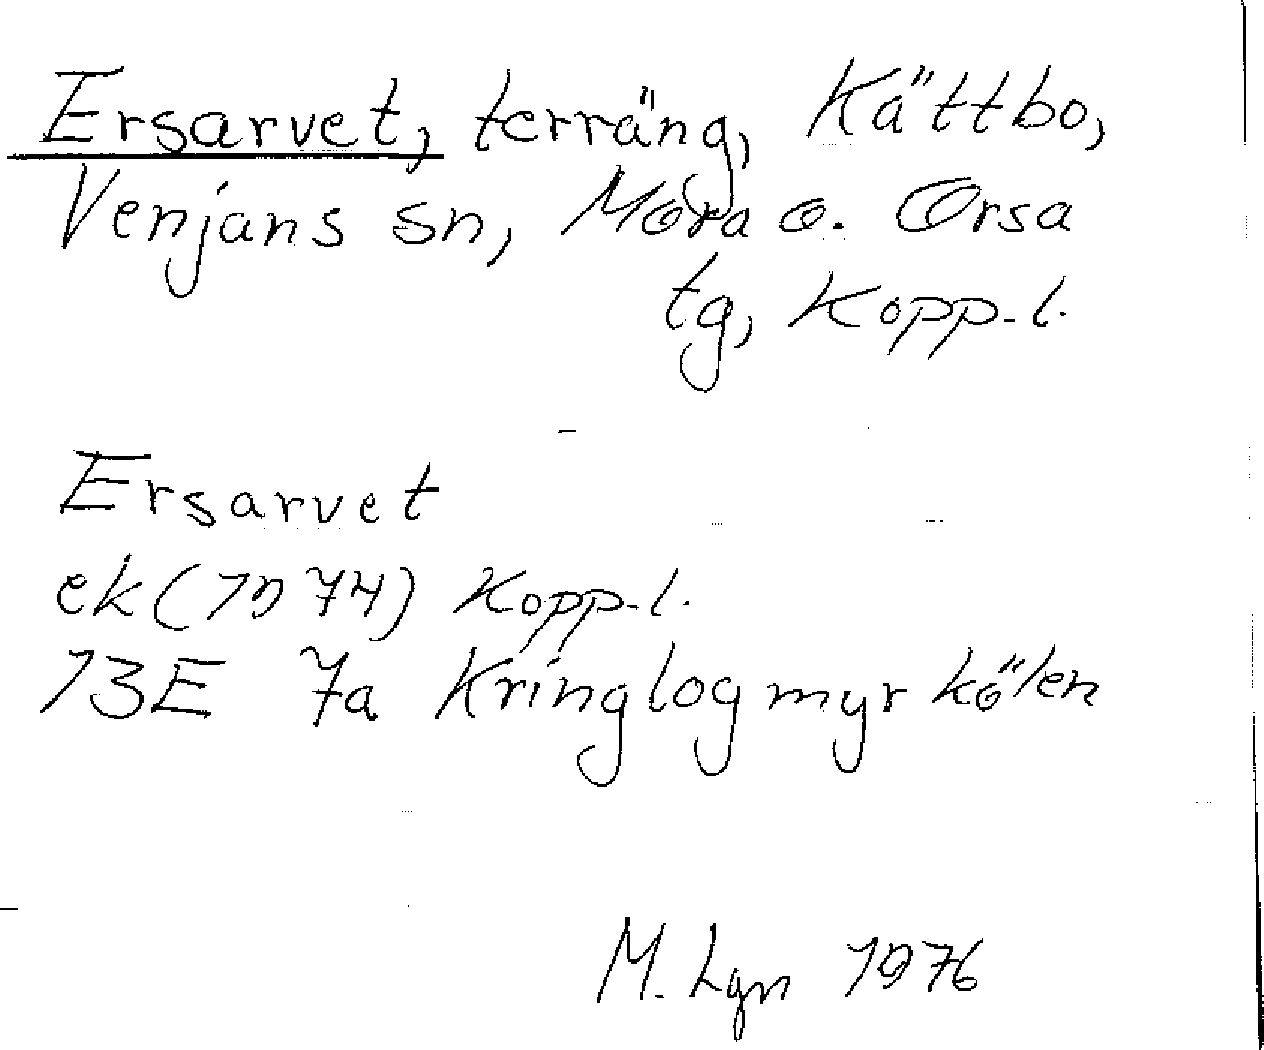 Ersarvet, terräng, Kättbo,
Venjans sn, Mora o. Orsa
tg, Kopp-l.
Ersarvet
ek (1974) Kopp-l.
13E 7a Kringlogmyrkölen
M. Lgn 1976